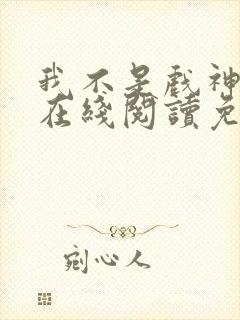 我不是戲神
在綫閱讀免
剜心人